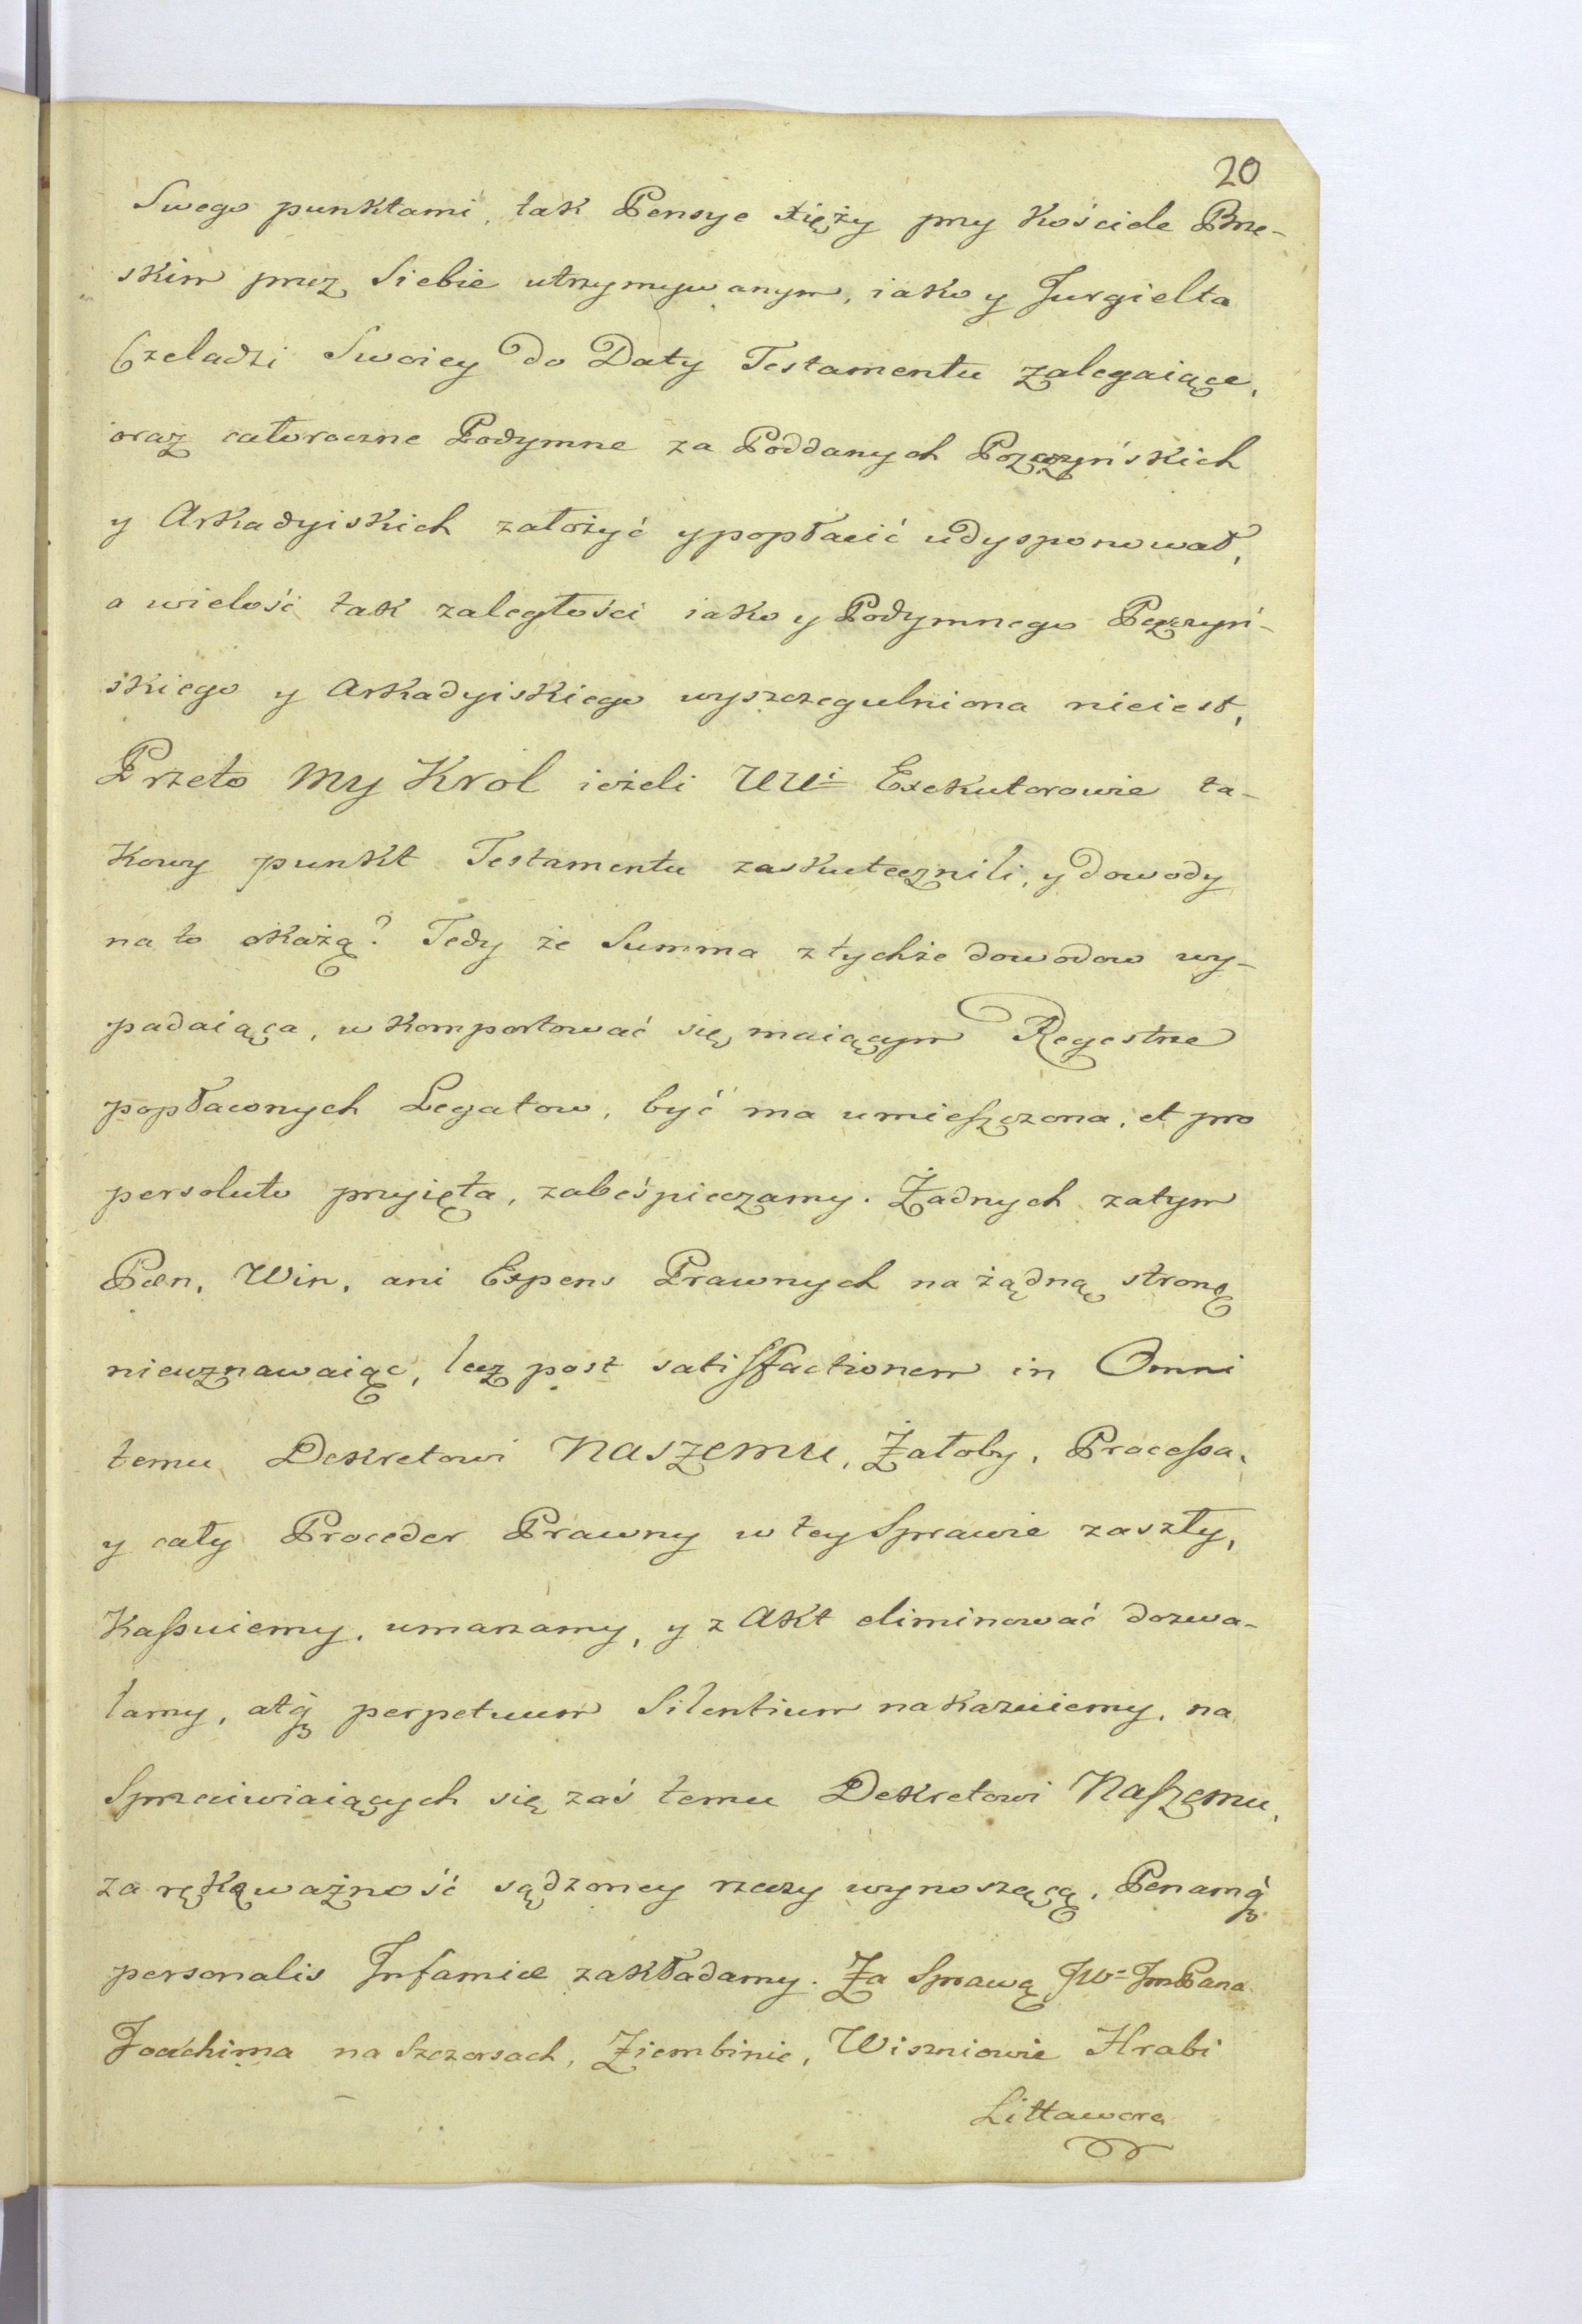 20
Swego punktami, tak Pensye Xięży przy Kościele Brze-
skim przez Siebie utrzymywanym, iako y Jurgielta
Czeladzi Swoiey do Daty Testamentu zalegaiące,
oraz całoroczne Podymne za Poddanych
y Arkadyiskich założyć y popłacić udysponował,
a wielość tak zaległości iako y Podymnego
skiego y Arkadyiskiego wyszczegulniona nieiest,
Przeto My Krol ieżeli UUi Exekutorowie ta-
kowy punkt Testamentu zaskutecznili, y dowody
na to okażą? Tedy że Summa z tychże dowodow wy-
padaiąca, w komportować się maiącym Regestrze
popłaconych Legatow, być ma umieszczona, et pro
persoluto przyięta, zabeśpieczamy. Żadnych zatym
Pœn, Win, ani Expens Prawnych na żądną stronę
nieuznawaiąc, lecz post satisfactionem in Omni
temu Dekretowi Naszemu, Żałoby, Processa,
y cały Proceder Prawny w tey Sprawie zaszły,
Kassuiemy, umarzamy, y z Akt eliminować dozwa-
lamy, atq perpetuum Silentium nakazuiemy, na
Sprzeciwiaiących się zaś temu Dekretowi Naszemu,
za rękę ważność sądzoney rzeczy wynoszącą, Penamq
personalis Infamiæ zakładamy. Za Sprawą JW= JmPana
Joachima na Szczorsach, Ziembinie, Wiszniowie Hrabi
Littawora